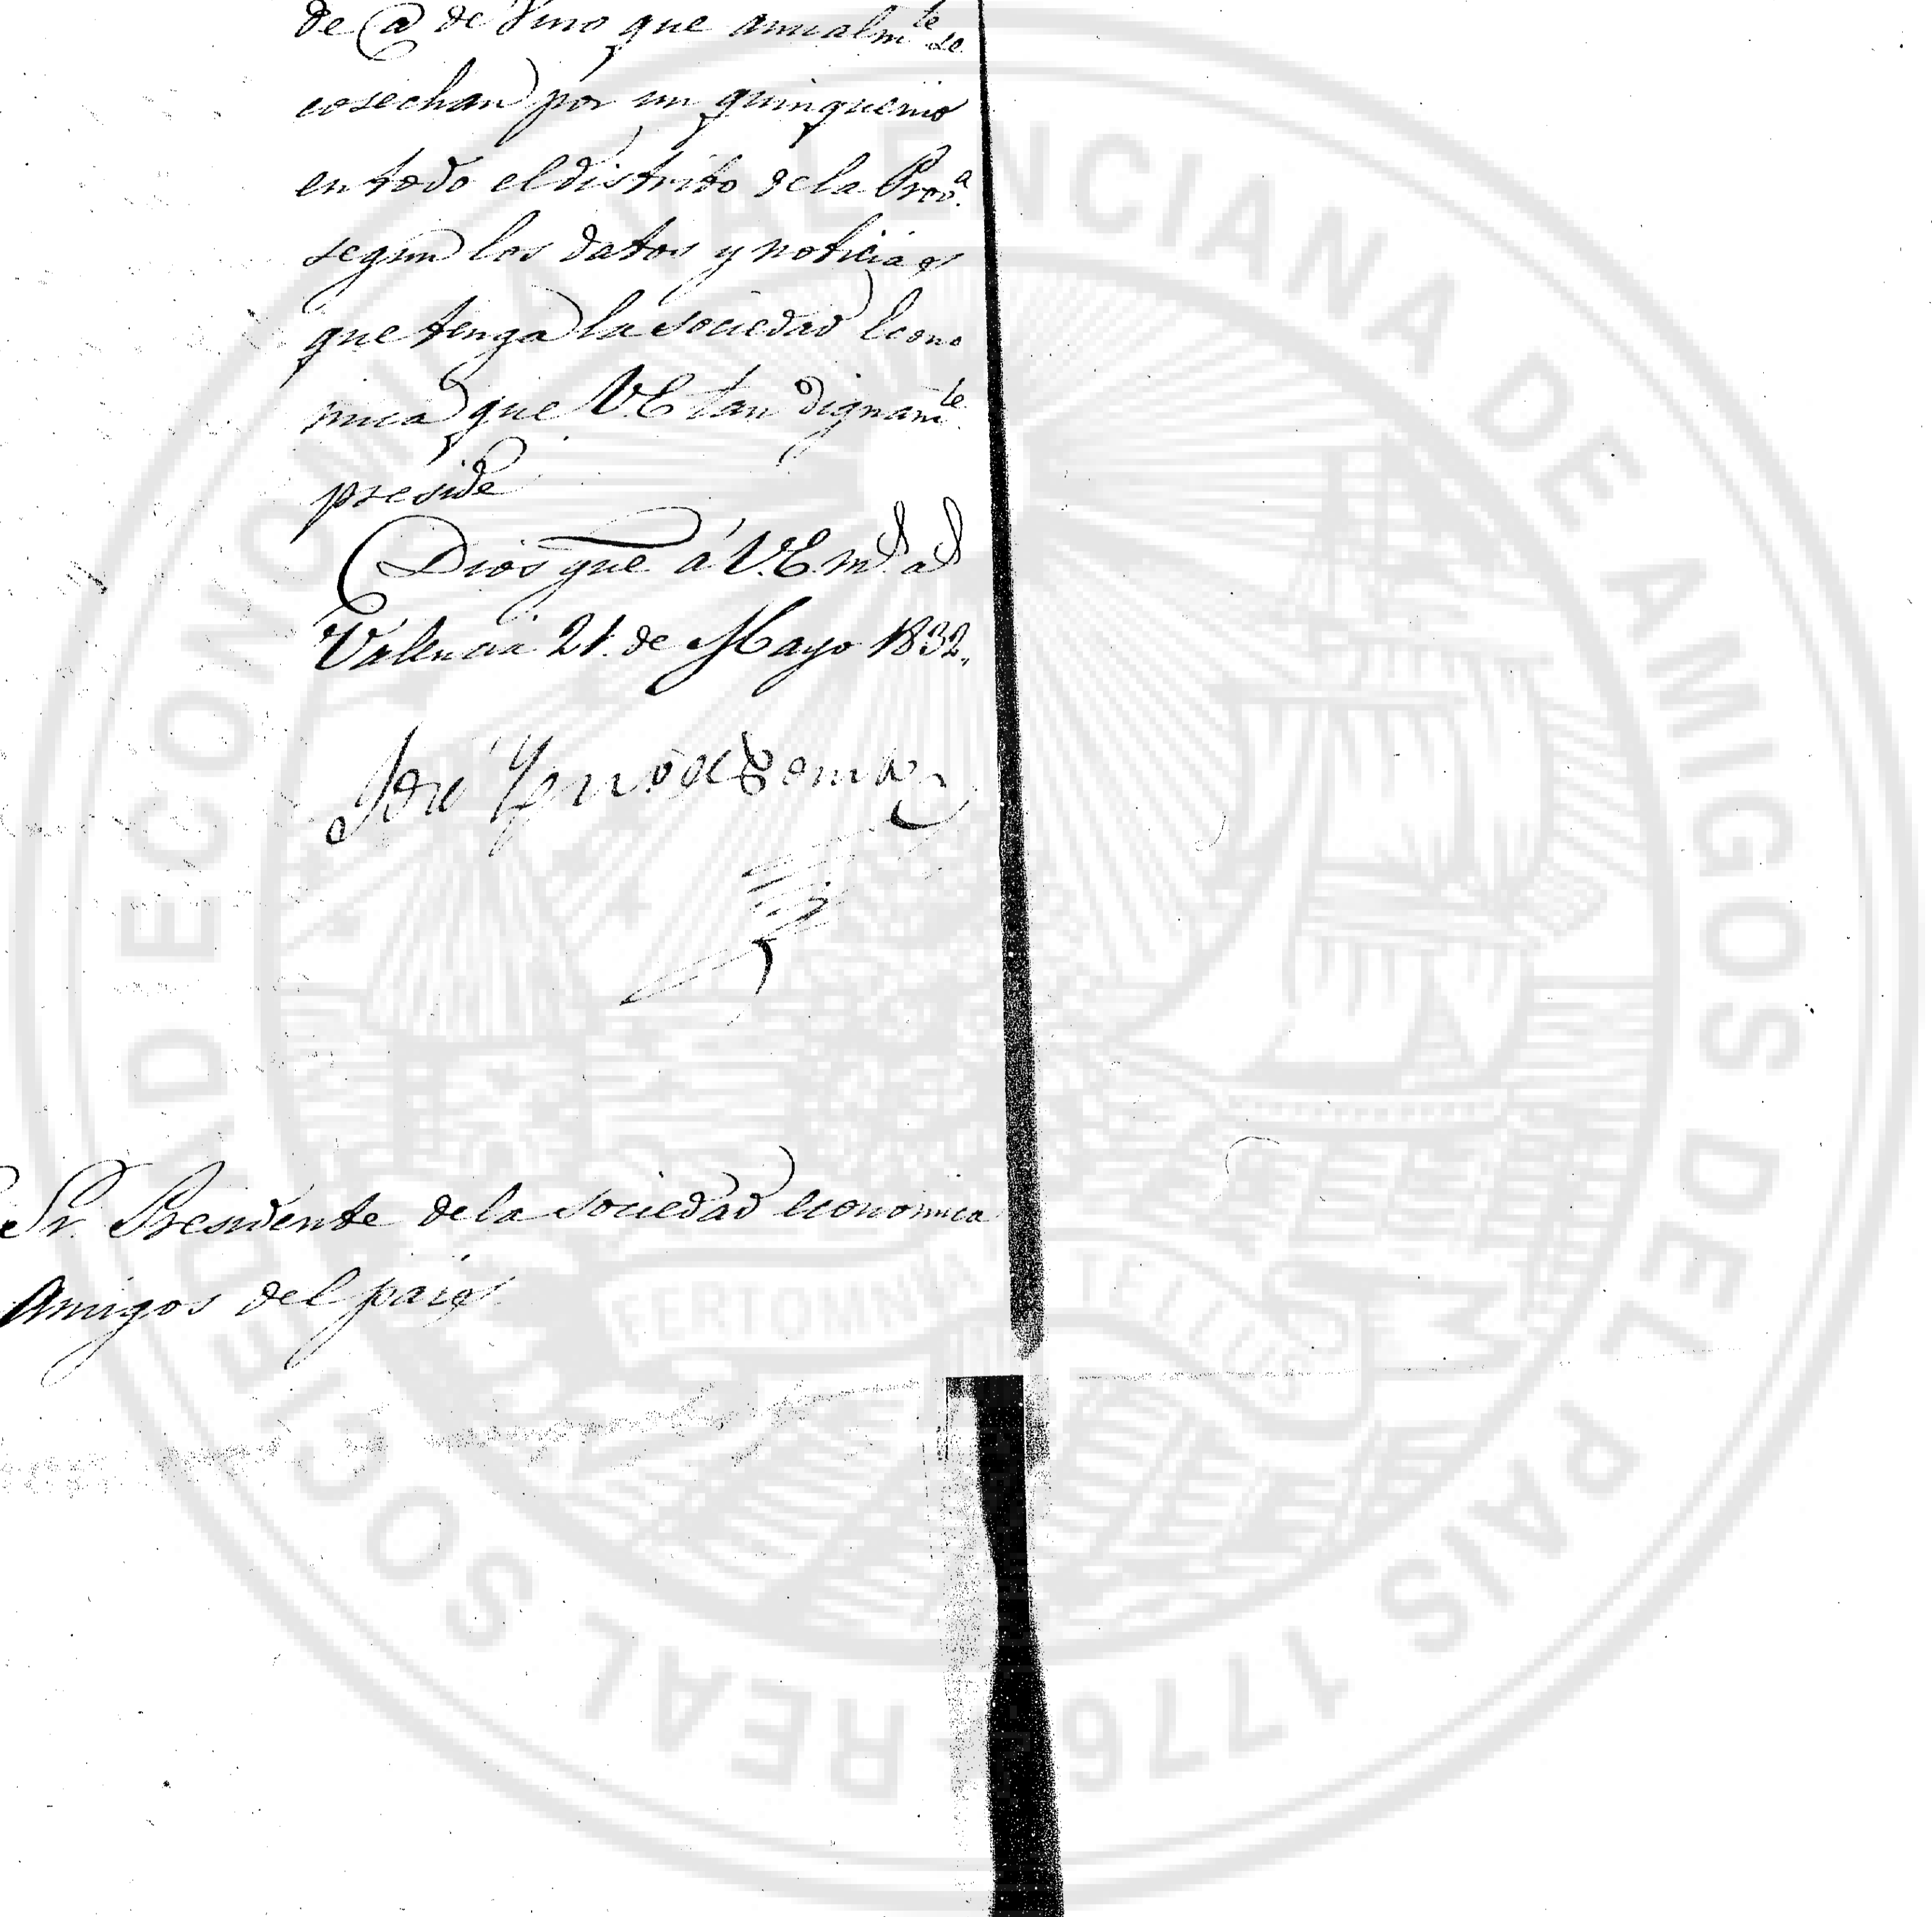 de @ de Vino que anualm.te se
cosechan por un quinquenio
en todo el distrito de la Prov.a
segun los datos y noticias
que tenga la sociedad Econo
mica que V.E tan dignam.te
preside
Dios gue á V.E. m.s a.s
Valencia 21. de Mayo 1832.
José
Sr. Presidente de la sociedad economica
Amigos del pais
REAL SOCIEDAD ECONOMICA VALENCIANA DE AMIGOS DEL PAIS 1776